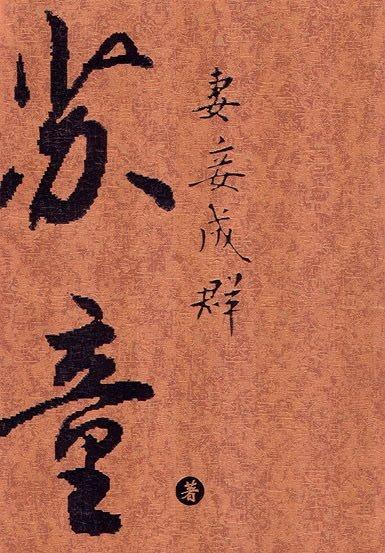 苏童
妻妾成群
著